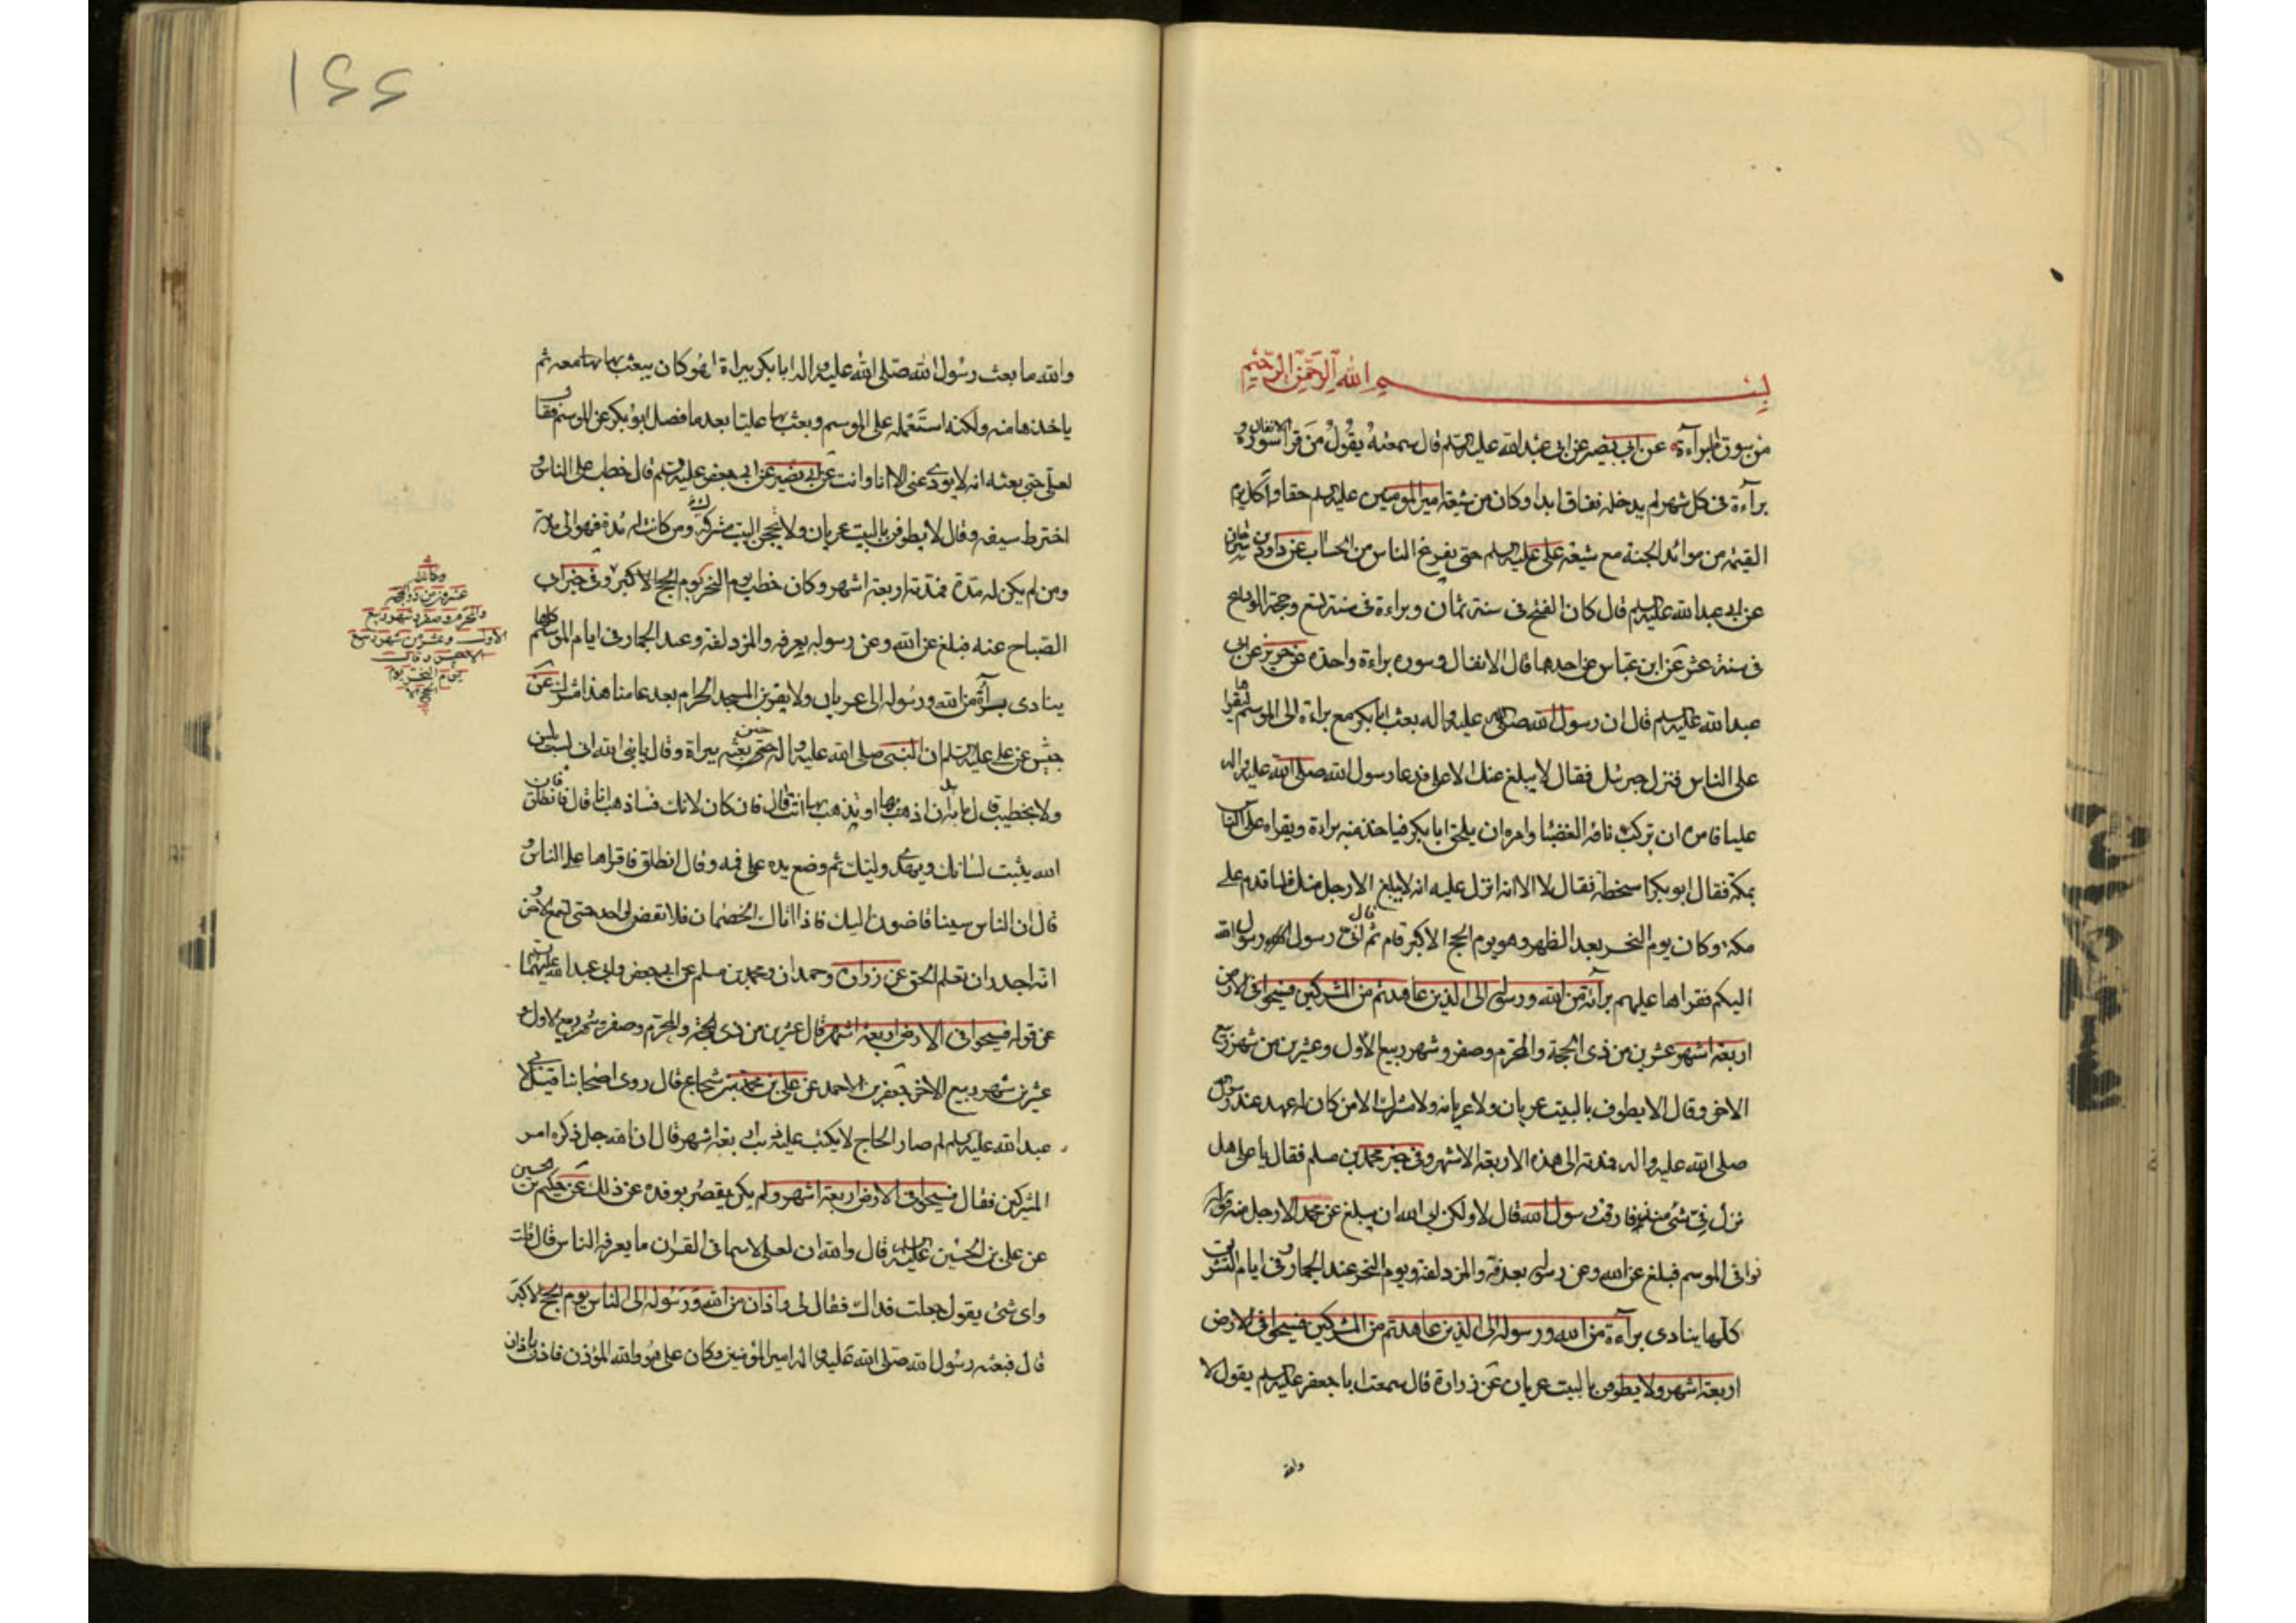 بسم الله الرحمن الرحيم
من سورة البرآءة عن ابي بصير عن ابي عبد الله عليه السلم قال سمعته يقول من قرأ سورة الانفال و
برآءة في كل شهر لم يدخله نفاق ابدا وكان من شيعة امير المومنين عليه السلم حقا واكل يوم
القيمة من موائد الجنة مع شيعة على عليه السلم حتى يفرغ الناس من الحساب عن داود بن سرحان
عن ابي عبد الله عليه السلم قال كان الفتح في سنة ثمان وبراءة في سنة تسع وحجة الوداع
في سنة عشر عن ابن عباس عن احدهما قال الانفال وسورة براءة واحدة عن حريز عن ابي
عبد الله عليه السلم قال ان رسول الله صلى الله عليه واله بعث ابا بكر مع براءة الى الموسم ليقراها
على الناس فنزل جبرئل فقال لا يبلغ عنك الا على فدعا رسول الله صلى الله عليه واله
عليا فامره ان يركب ناقة الغضبا وامره ان يلحق ابا بكر فياخذ منه براءة ويقراه على الناس
بمكة فقال ابو بكر اسخطة فقال لا الا انه انزل عليه انه لا يبلغ الا رجل منك فلما قدم على
مكة وكان يوم النحر بعد الظهر وهو يوم الحج الاكبر قام ثم قال انى رسول رسول الله
اليكم فقراها عليهم برآئة من الله ورسوله الى الذين عاهدتم من المشركين فسيحوا في الارض
اربعة اشهر عشرين من ذي الحجة والمحرم وصفر وشهر ربيع الاول وعشرين من شهر ربيع
الاخر وقال لا يطوف بالبيت عريان ولا عريانة ولا مشرك الا من كان له عهد عند رسول
صلى الله عليه واله فمدته الى هذه الاربعة الاشهر وفي خبر محمد بن مسلم فقال يا على هل
نزل في شئ منذ فارقت رسول الله قال لا ولكن ابى الله ان يبلغ عن محمد الا رجل منه
فوافى الموسم فبلغ عن الله وعن رسوله بعرفة والمزدلفة ويوم النحر عند الجمار وفي ايام التشريق
كلها ينادى برآءة من الله ورسوله الى الذين عاهدتم من المشركين فسيحوا في الارض
اربعة اشهر ولا يطوفن بالبيت عريان عن زرارة قال سمعت ابا جعفر عليه السلم يقول لا
والله
١٤٤
والله ما بعث رسول الله صلى الله عليه واله ابا بكر ببراءة اهو كان يبعث بها معه ثم
ياخذها منه ولكنه استعمله على الموسم وبعث بها عليا بعد ما فصل ابو بكر عن الموسم فقال
لعلى حتى بعثه انه لا يودى عنى الا انا وانت عن ابي بصير عن ابي جعفر عليه السلم قال خطب على الناس و
اخترط سيفه وقال لا يطوفن بالبيت عريان ولا يحجن البيت مشرك ومن كانت له مدة فهو الى مدته
ومن لم يكن له مدة فمدته اربعة اشهر وكان خطب يوم النحر يوم الحج الاكبر وفي خبر ابي
الصباح عنه فبلغ عن الله وعن رسوله بعرفة والمزدلفة وعند الجمار في ايام الموسم كلها
ينادى برآءة من الله ورسوله الى عريان ولا يقربن المسجد الحرام بعد عامنا هذا مشرك عن
حبش عن على عليه السلم ان النبى صلى الله عليه واله حين بعثه ببراءة وقال يا نبى الله انى لست بلسن
ولا بخطيب قال ما بد ان اذهب بها او تذهب بها انت قال فان كان لا بد فساذهب انا قال فانطلق فان
الله يثبت لسانك ويهدى قلبك ثم وضع يده على فيه وقال انطلق فاقراها على الناس و
قال ان الناس سيتقاضون اليك فاذا اتاك الخصمان فلا تقض لواحد حتى تسمع الاخر
انه اجدر ان تعلم الحق عن زرارة وحمران ومحمد بن مسلم عن ابي جعفر وابي عبد الله عليهما السلم
عن قوله فسيحوا في الارض اربعة اشهر قال عشرين من ذي الحجة والمحرم وصفر وشهر ربيع الاول و
عشرين شهر ربيع الاخر جعفر بن احمد عن على بن محمد بن شجاع قال روى اصحابنا قيل لابي
عبد الله عليه السلم لم صار الحاج لا يكتب عليه ذنب اربعة اشهر قال ان الله جل ذكره امر
المشركين فقال فسيحوا في الارض اربعة اشهر ولم يكن يقصر بوفده عن ذلك عن حكيم بن الحسين
عن على بن الحسين عليه السلم قال والله ان لعلى لاسما في القران ما يعرفه الناس قال قلت
واى شئ يقول جعلت فداك فقال لى واذان من الله ورسوله الى الناس يوم الحج الاكبر
قال فبعث رسول الله صلى الله عليه واله امير المؤمنين وكان على هو والله المؤذن فاذن باذان
عشرون من ذو الحجة
والمحرم وصفر وشهر ربيع
الاول وعشر من شهر ربيع
الاخر وقال
يوم النحر يوم
الحج